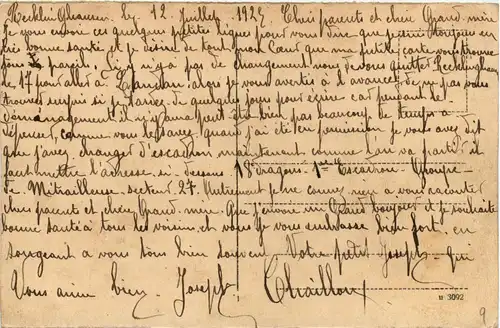 Recklinghausen le 12 Juillet 1925 Chers parents et cheu Grand mère
Je vous envoie ces quelques petites lignes pour vous dire que je suis toutous en
très bonne santé et je désire de tout mon Cœur que ma petite carte vous trouve
tous de pareil. Ici il n'y a pas de changement nous devons quitter Recklinghausen
le 17 pour aller à alors je vous avertis à l'avance de pas vous
trouver surpris si je tardez de quelques jours pour écrire car pendant le
démanagement il n'y aura peut être bien pas beaucoup de temps a
dépenser, comme vous le savez quand j'ai été en permission je vous avez dit
que j'avez changer d'escadron maintenant comme j'ai va partir il
faut mettre l'adresse si dessous 18 dragons 1er Escadron Groupe
de Mitrailleuse secteur 27. Autrement je ne connez rien a vous raconter
chers parents et cheu Grand mère. Que j'envoie un Grand bonjour et je souhaite
bonne santé à tous les voisins, et vous embrasse bien fort, en
songeant a vous tous bien souvent Votre petit Joseph qui
Vous aime bien Joseph Chaillou
M 3092
9